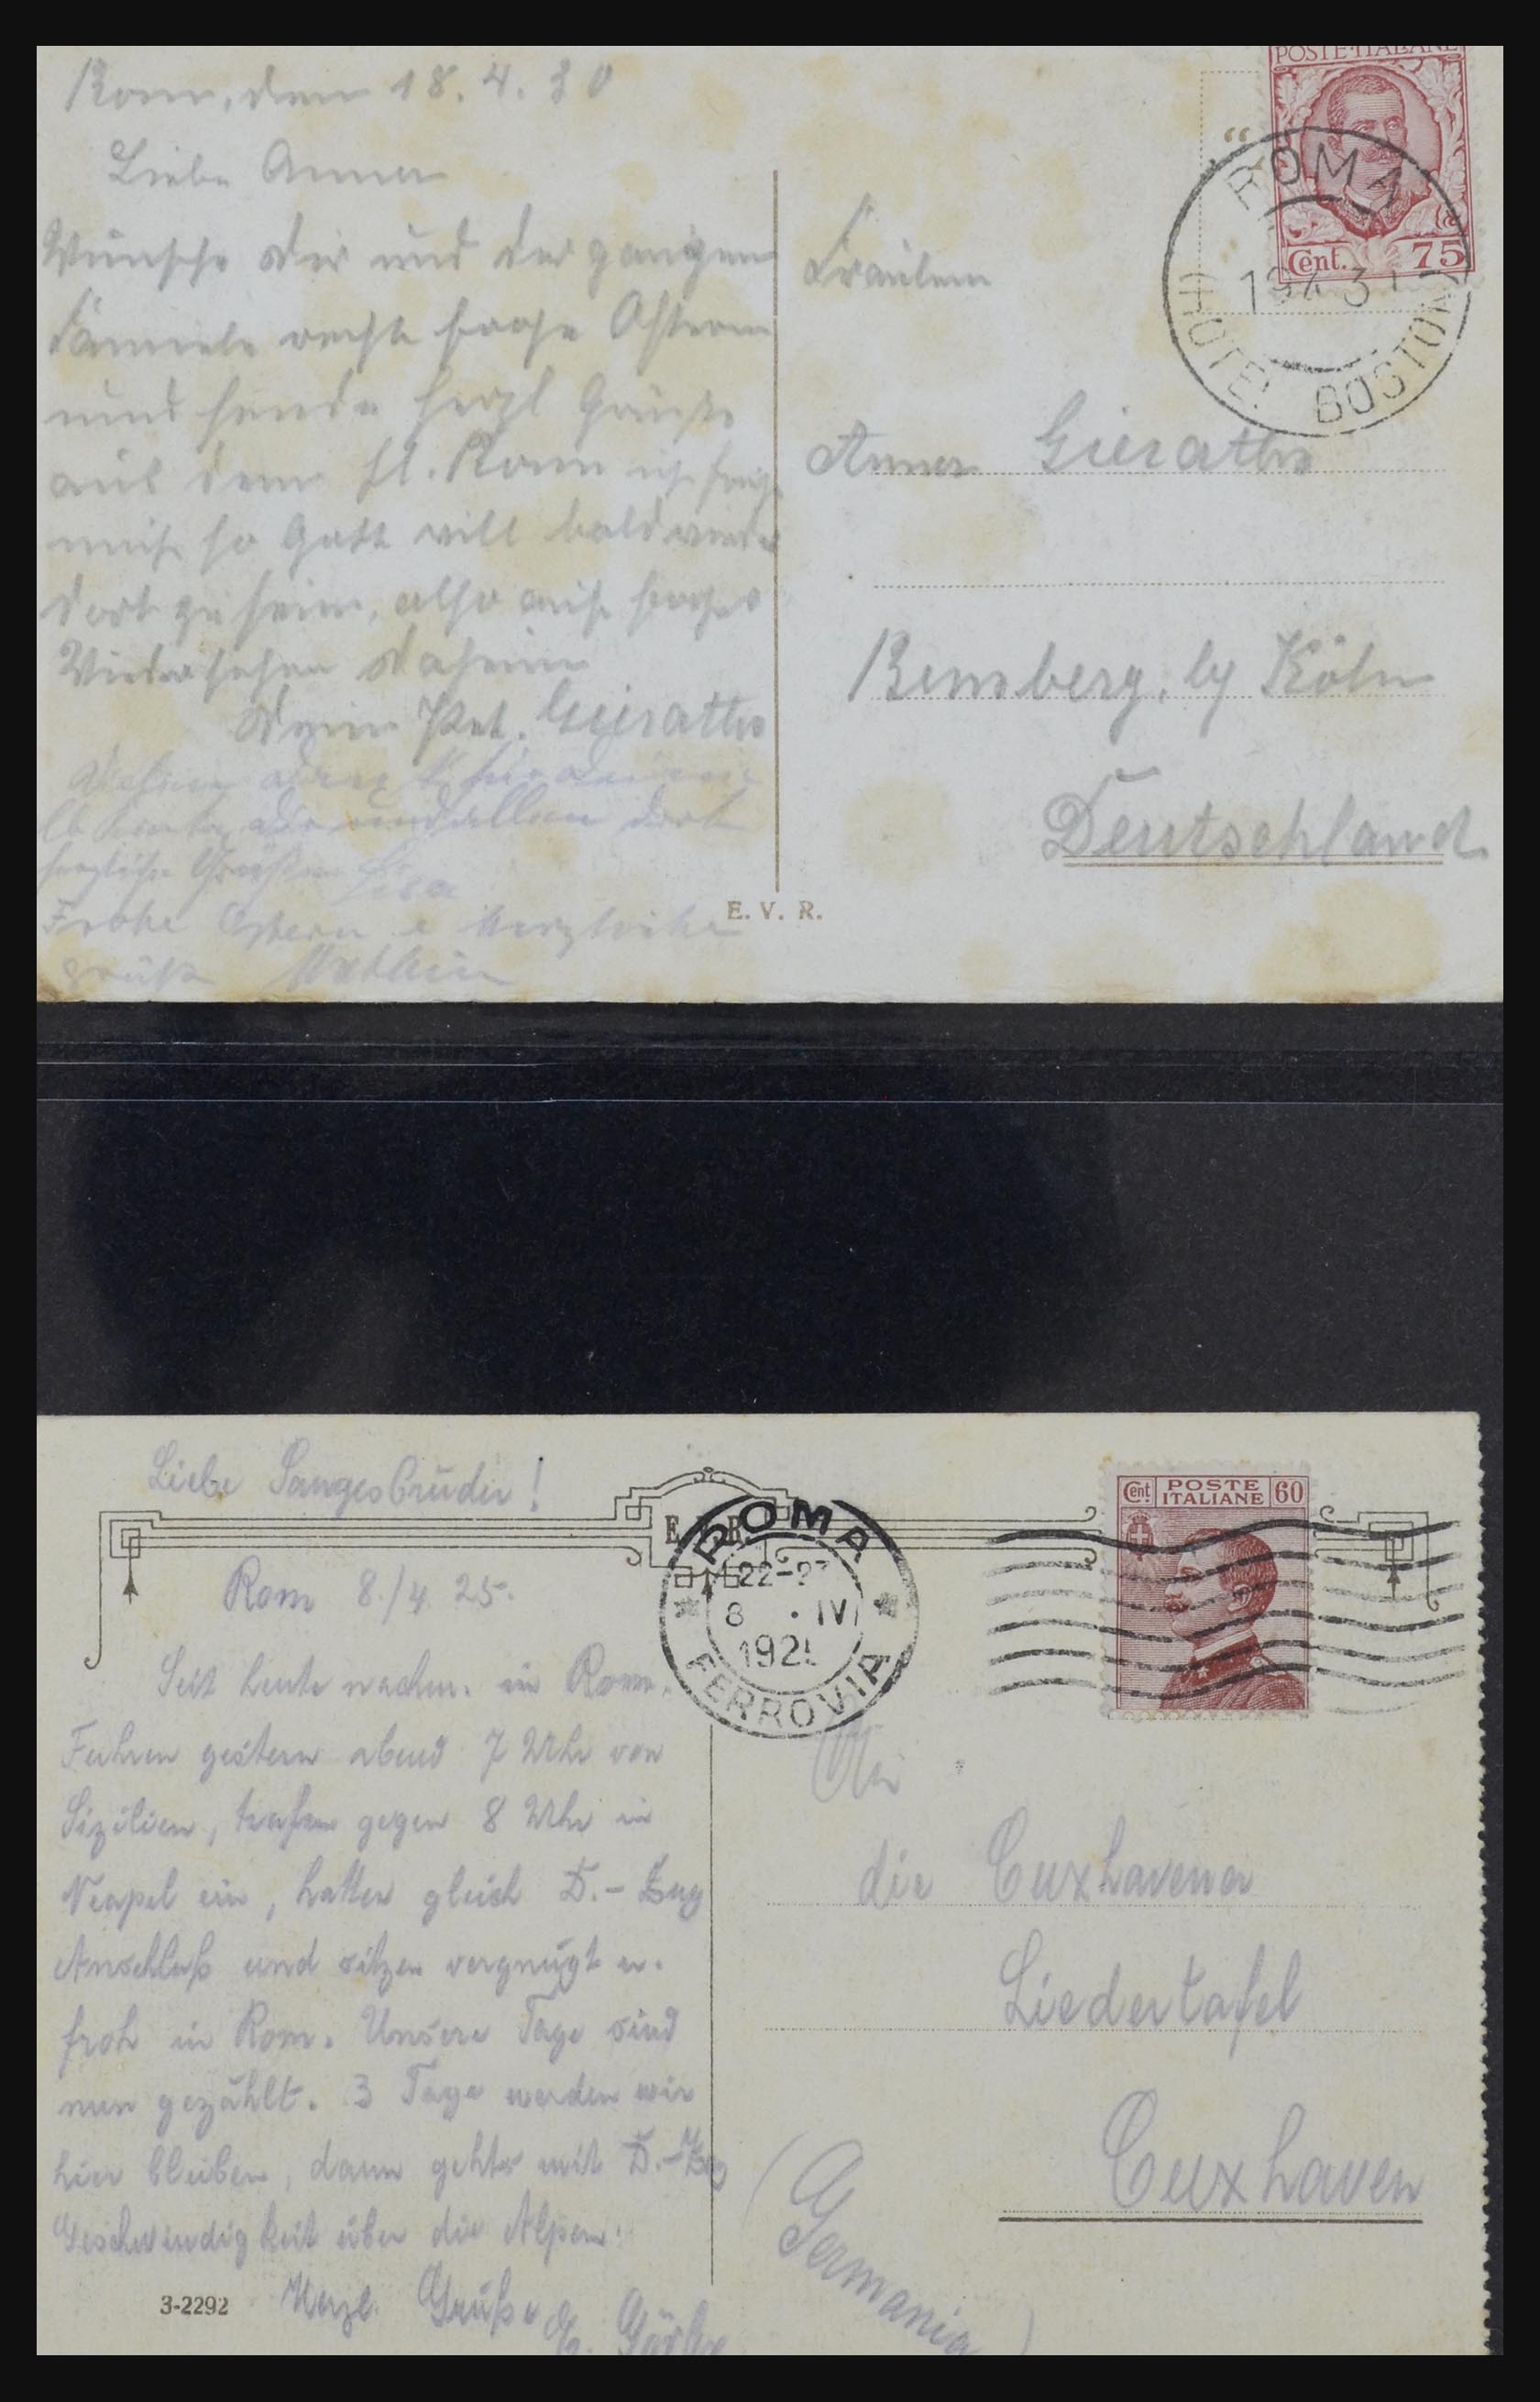 Rom, den 18.4.30
Liebe Anna
Wünsche dir und der ganzen
Familie recht frohe Ostern
und sende herzl Grüße
aus dem hl. Rom
mich so Gott will bald wieder
dort zu sein, also auf frohes
Wiedersehen daheim
Dein Pet. Gieraths
dir und allen dort
herzliche Grüße Lisa
Frohe Ostern e Herzliche
POSTE ITALIANE
Cent. 75
ROMA
(HOTEL BOSTON)
Fräulein
Anna Gieraths
Bensberg, by Köln
Deutschland
E. V. R.
Liebe Sangesbrüder!
Rom 8./4. 25.
Seit heute nachm. in Rom.
Fuhren gestern abend 7 Uhr von
Sizilien, trafen gegen 8 Uhr in
Neapel ein, hatten gleich D.-Zug
Anschluß und sitzen vergnügt u.
froh in Rom. Unsere Tage sind
nun gezählt. 3 Tage werden wir
hier bleiben, dann gehts mit D.-Zug
Geschwindigkeit über die Alpen.
3-2292
Herzl. Grüße
ROMA
22-23
8 . IV
192
FERROVIA
Cent. POSTE ITALIANE 60
An
die Cuxhavener
Liedertafel
Cuxhaven
(Germania)